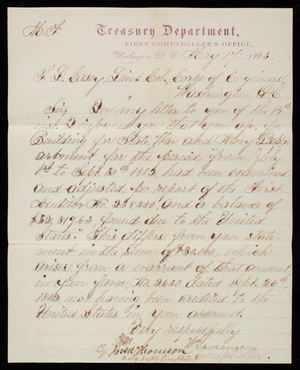 M. F.
Treasury Department,
FIRST COMPTROLLER'S OFFICE,
Washington, D. C., May 17, 1883.
T. L. Casey Lieut. Col. Corps of Engineers,
Washington, D.C.
Sir: In my letter to you of the 15th
inst I
Building for State, War and Navy Dep
artment for the period from July
1st to Sept. 30th 1882, had been examined
and adjusted per report of the First
Auditor No. and a balance of
found due to the United
States. This differs from your state-
ment in the sum of which
arises from a warrant of that amount
in your favor No. dated Sept. 26th
1882 not having been credited to the
United States in your account.
Very respectfully
Wm Lawrence
By Comptroller